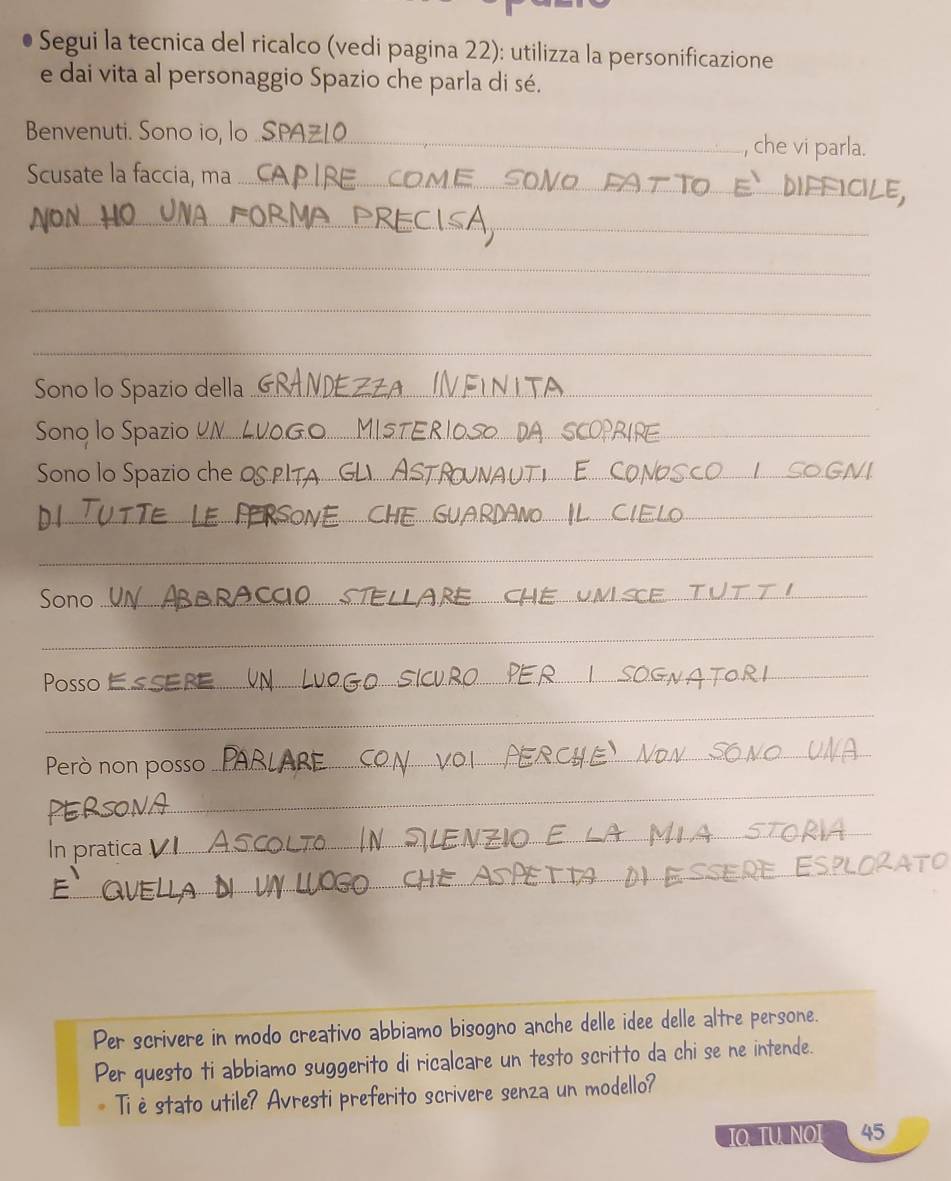 • Segui la tecnica del ricalco (vedi pagina 22): utilizza la personificazione
e dai vita al personaggio Spazio che parla di sé.
Benvenuti. Sono io, lo SPAZIO, che vi parla.
Scusate la faccia, ma CAPIRE COME SONO FATTO E' DIFFICILE,
NON HO UNA FORMA PRECISA,
Sono lo Spazio della GRANDEZZA INFINITA
Sono lo Spazio UN LUOGO MISTERIOSO DA SCOPRIRE
Sono lo Spazio che OSPITA GLI ASTROUNAUTI E CONOSCO I SOGNI
DI TUTTE LE PERSONE CHE GUARDANO IL CIELO
Sono UN ABBRACCIO STELLARE CHE UNISCE TUTTI
Posso ESSERE UN LUOGO SICURO PER I SOGNATORI
Però non posso PARLARE CON VOI PERCHE' NON SONO UNA
PERSONA
In pratica VI ASCOLTO IN SILENZIO E LA MIA STORIA
E' QUELLA DI UN LUOGO CHE ASPETTA DI ESSERE ESPLORATO
Per scrivere in modo creativo abbiamo bisogno anche delle idee delle altre persone.
Per questo ti abbiamo suggerito di ricalcare un testo scritto da chi se ne intende.
• Ti è stato utile? Avresti preferito scrivere senza un modello?
IO, TU, NOI 45